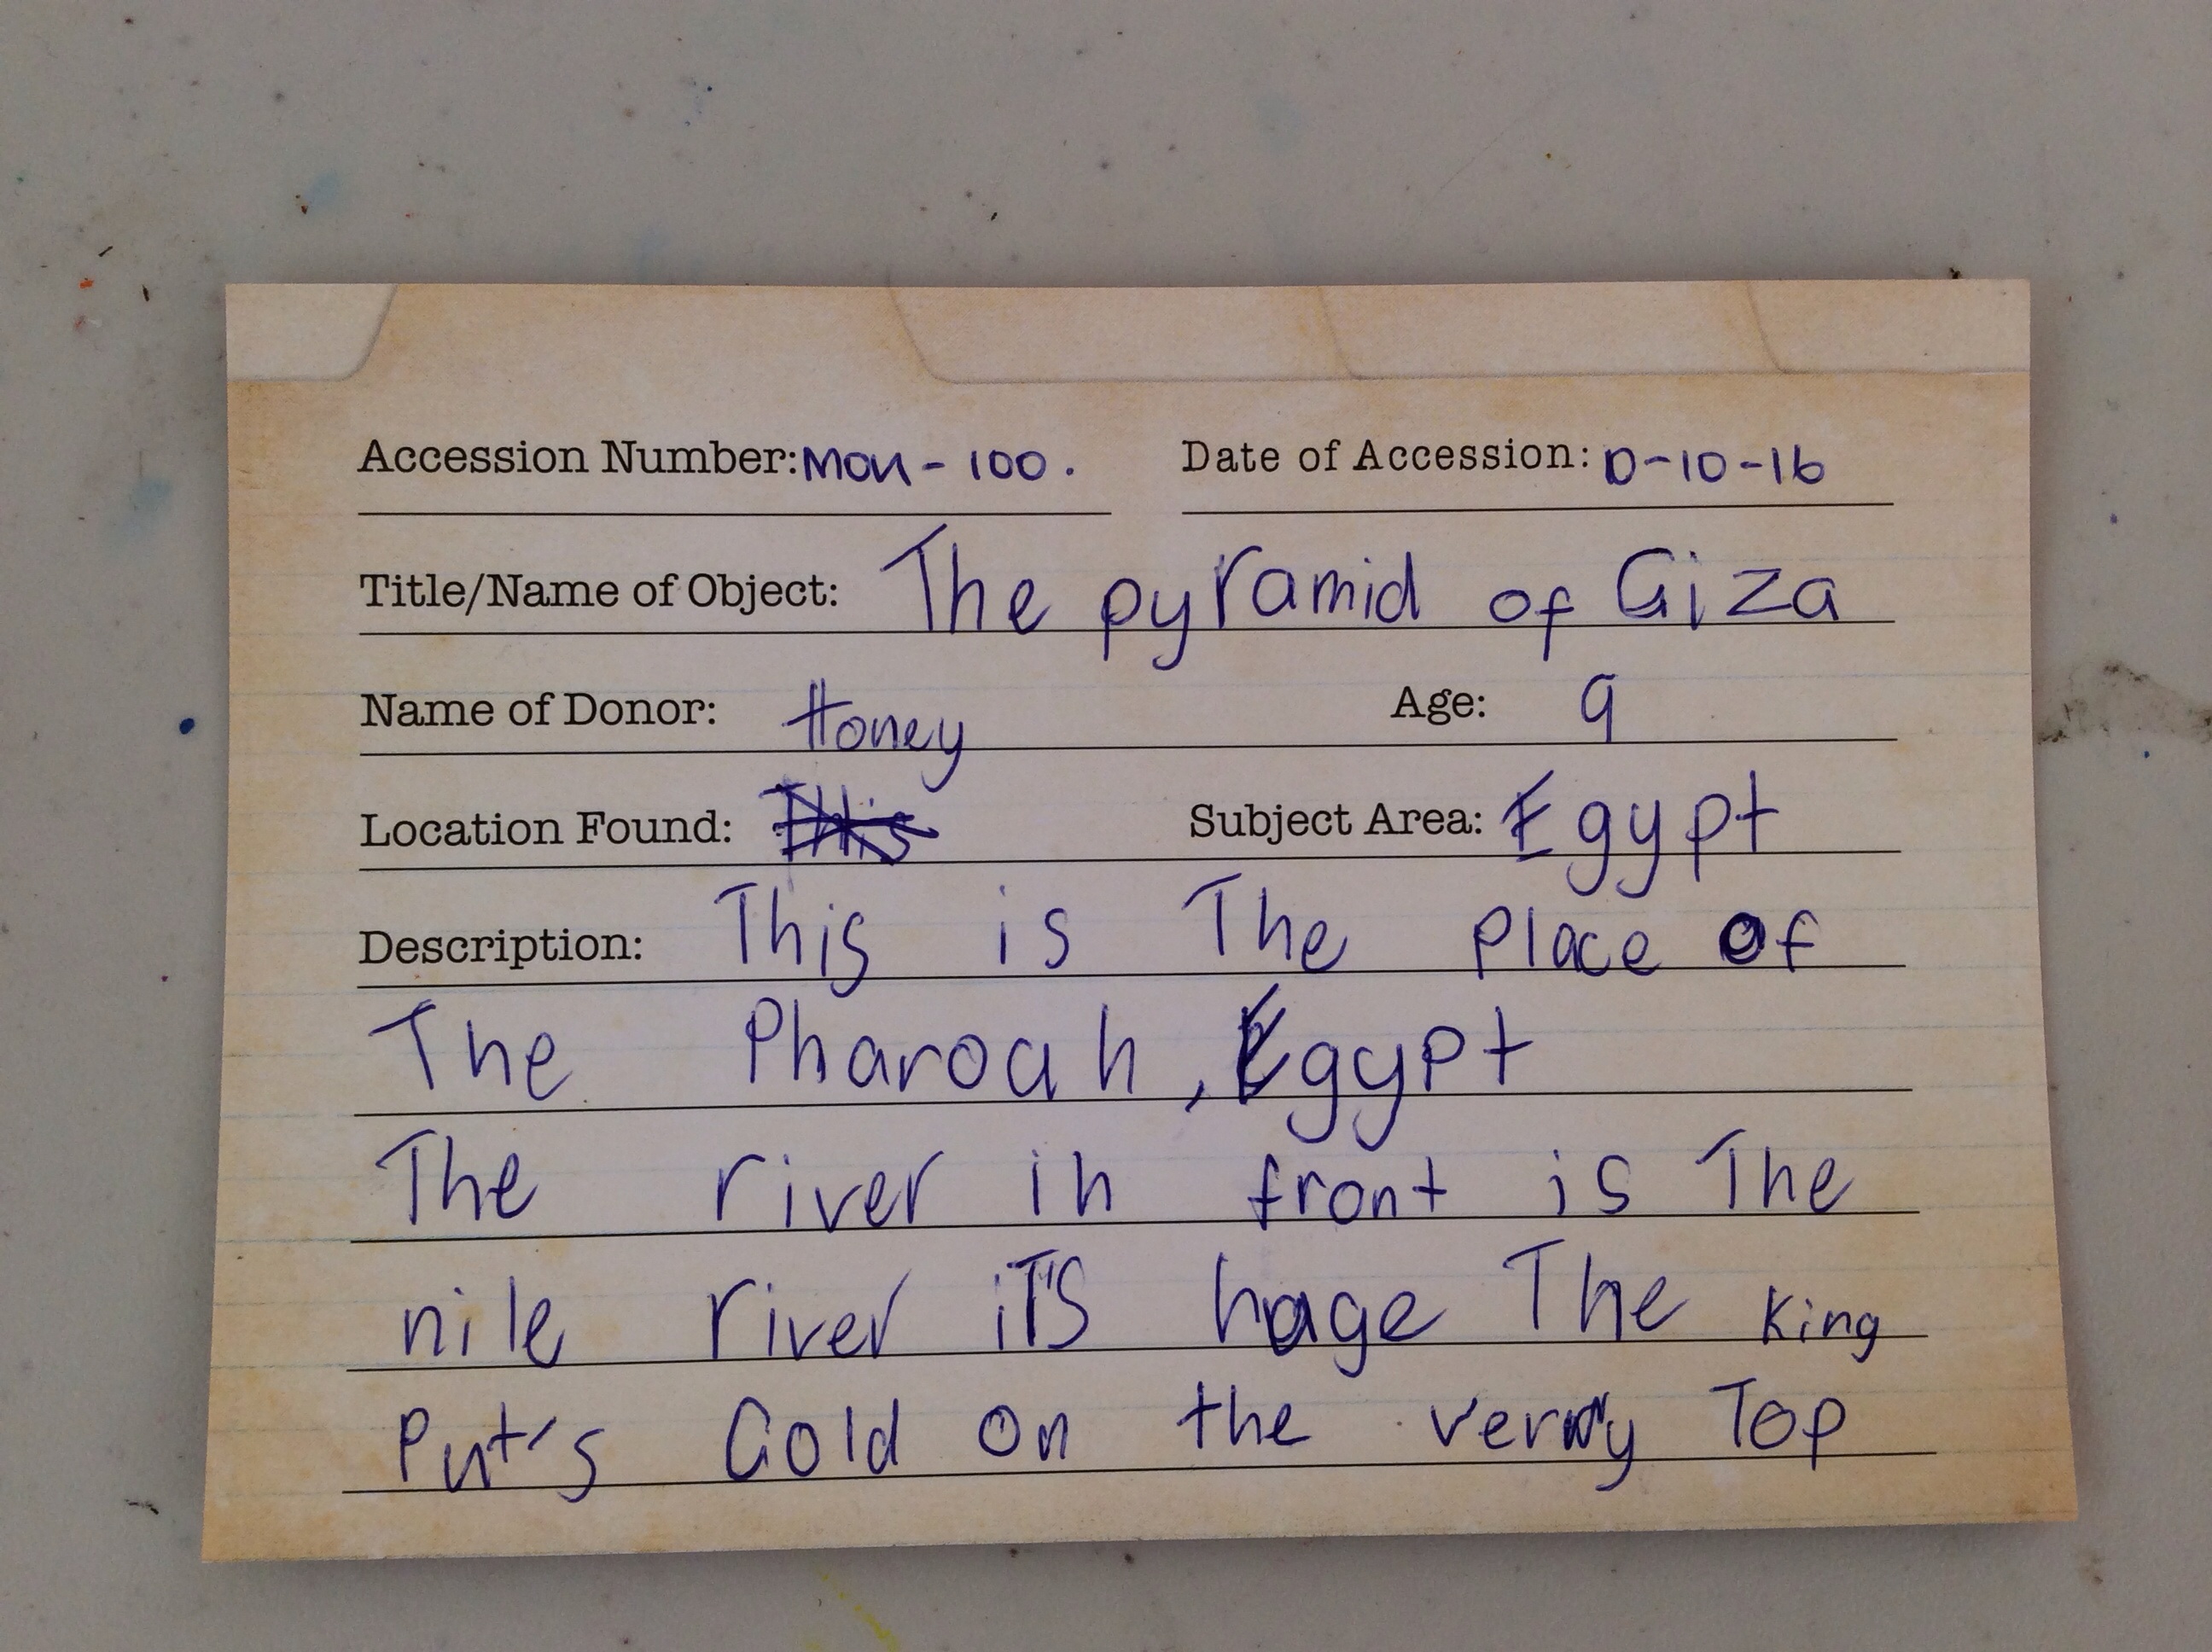 Accession Number: MON-100. Date of Accession: 10-10-16
Title/Name of Object: The pyramid of Giza
Name of Donor: Honey Age: 9
Location Found: Subject Area: Egypt
Description: This is The Place of
The Pharoah, Egypt
The river in front is The
nile river iT'S hage The King
Put's Gold on the verry Top